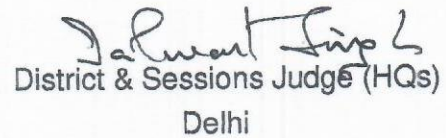 Talwant Singh
District & Sessions Judge (HQs)
Delhi